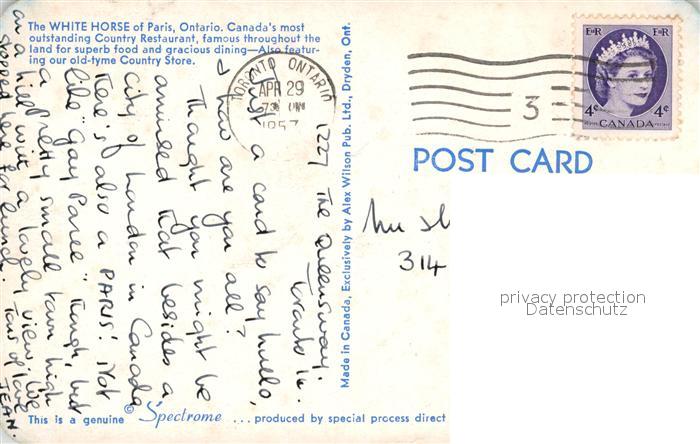 The WHITE HORSE of Paris, Ontario. Canada's most
outstanding Country Restaurant, famous throughout the
land for superb food and gracious dining—Also featur-
ing our old-tyme Country Store.
1227 The Queensway.
Toronto 14.
Just a card to say hullo,
& how are you all?
Thought you might be
amused that besides a
city of London in Canada
there's also a PARIS! Not
like "gay Paree" though, but
a pretty small town high
on a hill with a lovely view. We
stopped here for lunch. Tons of love
JEAN.
This is a genuine Spectrome ... produced by special process direct
©
Made in Canada, Exclusively by Alex Wilson Pub. Ltd., Dryden, Ont.
TORONTO ONTARIO
APR 29
1957
3
E II R E II R
4¢ 4¢
CANADA
POST CARD
314
privacy protection
Datenschutz